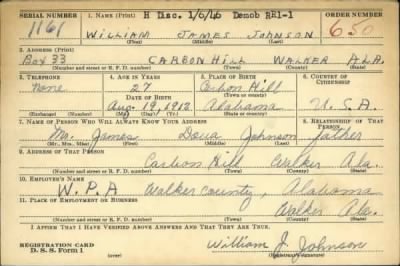 SERIAL NUMBER 1. NAME (Print) H Disc. 1/6/46 Demob RR1-1 ORDER NUMBER
1161 WILLIAM JAMES JOHNSON 650
(First) (Middle) (Last)
2. ADDRESS (Print)
Box 33 CARBON HILL WALKER ALA.
(Number and street or R. F. D. number) (Town) (County) (State)
3. TELEPHONE 4. AGE IN YEARS 5. PLACE OF BIRTH 6. COUNTRY OF CITIZENSHIP
None 27 Carbon Hill
DATE OF BIRTH (Town or county)
Aug. 19, 1912 Alabama U.S.A.
(Exchange) (Number) (Mo.) (Day) (Yr.) (State or country)
7. NAME OF PERSON WHO WILL ALWAYS KNOW YOUR ADDRESS 8. RELATIONSHIP OF THAT PERSON
Mr. James Johnson father
(Mr., Mrs., Miss) (First) (Middle) (Last)
9. ADDRESS OF THAT PERSON
Carbon Hill Walker Ala.
(Number and street or R. F. D. number) (Town) (County) (State)
10. EMPLOYER'S NAME
W.P.A Walker County, Alabama
11. PLACE OF EMPLOYMENT OR BUSINESS
Walker Ala.
(Number and street or R. F. D. number) (Town) (County) (State)
I AFFIRM THAT I HAVE VERIFIED ABOVE ANSWERS AND THAT THEY ARE TRUE.
REGISTRATION CARD
D. S. S. Form 1 William J. Johnson